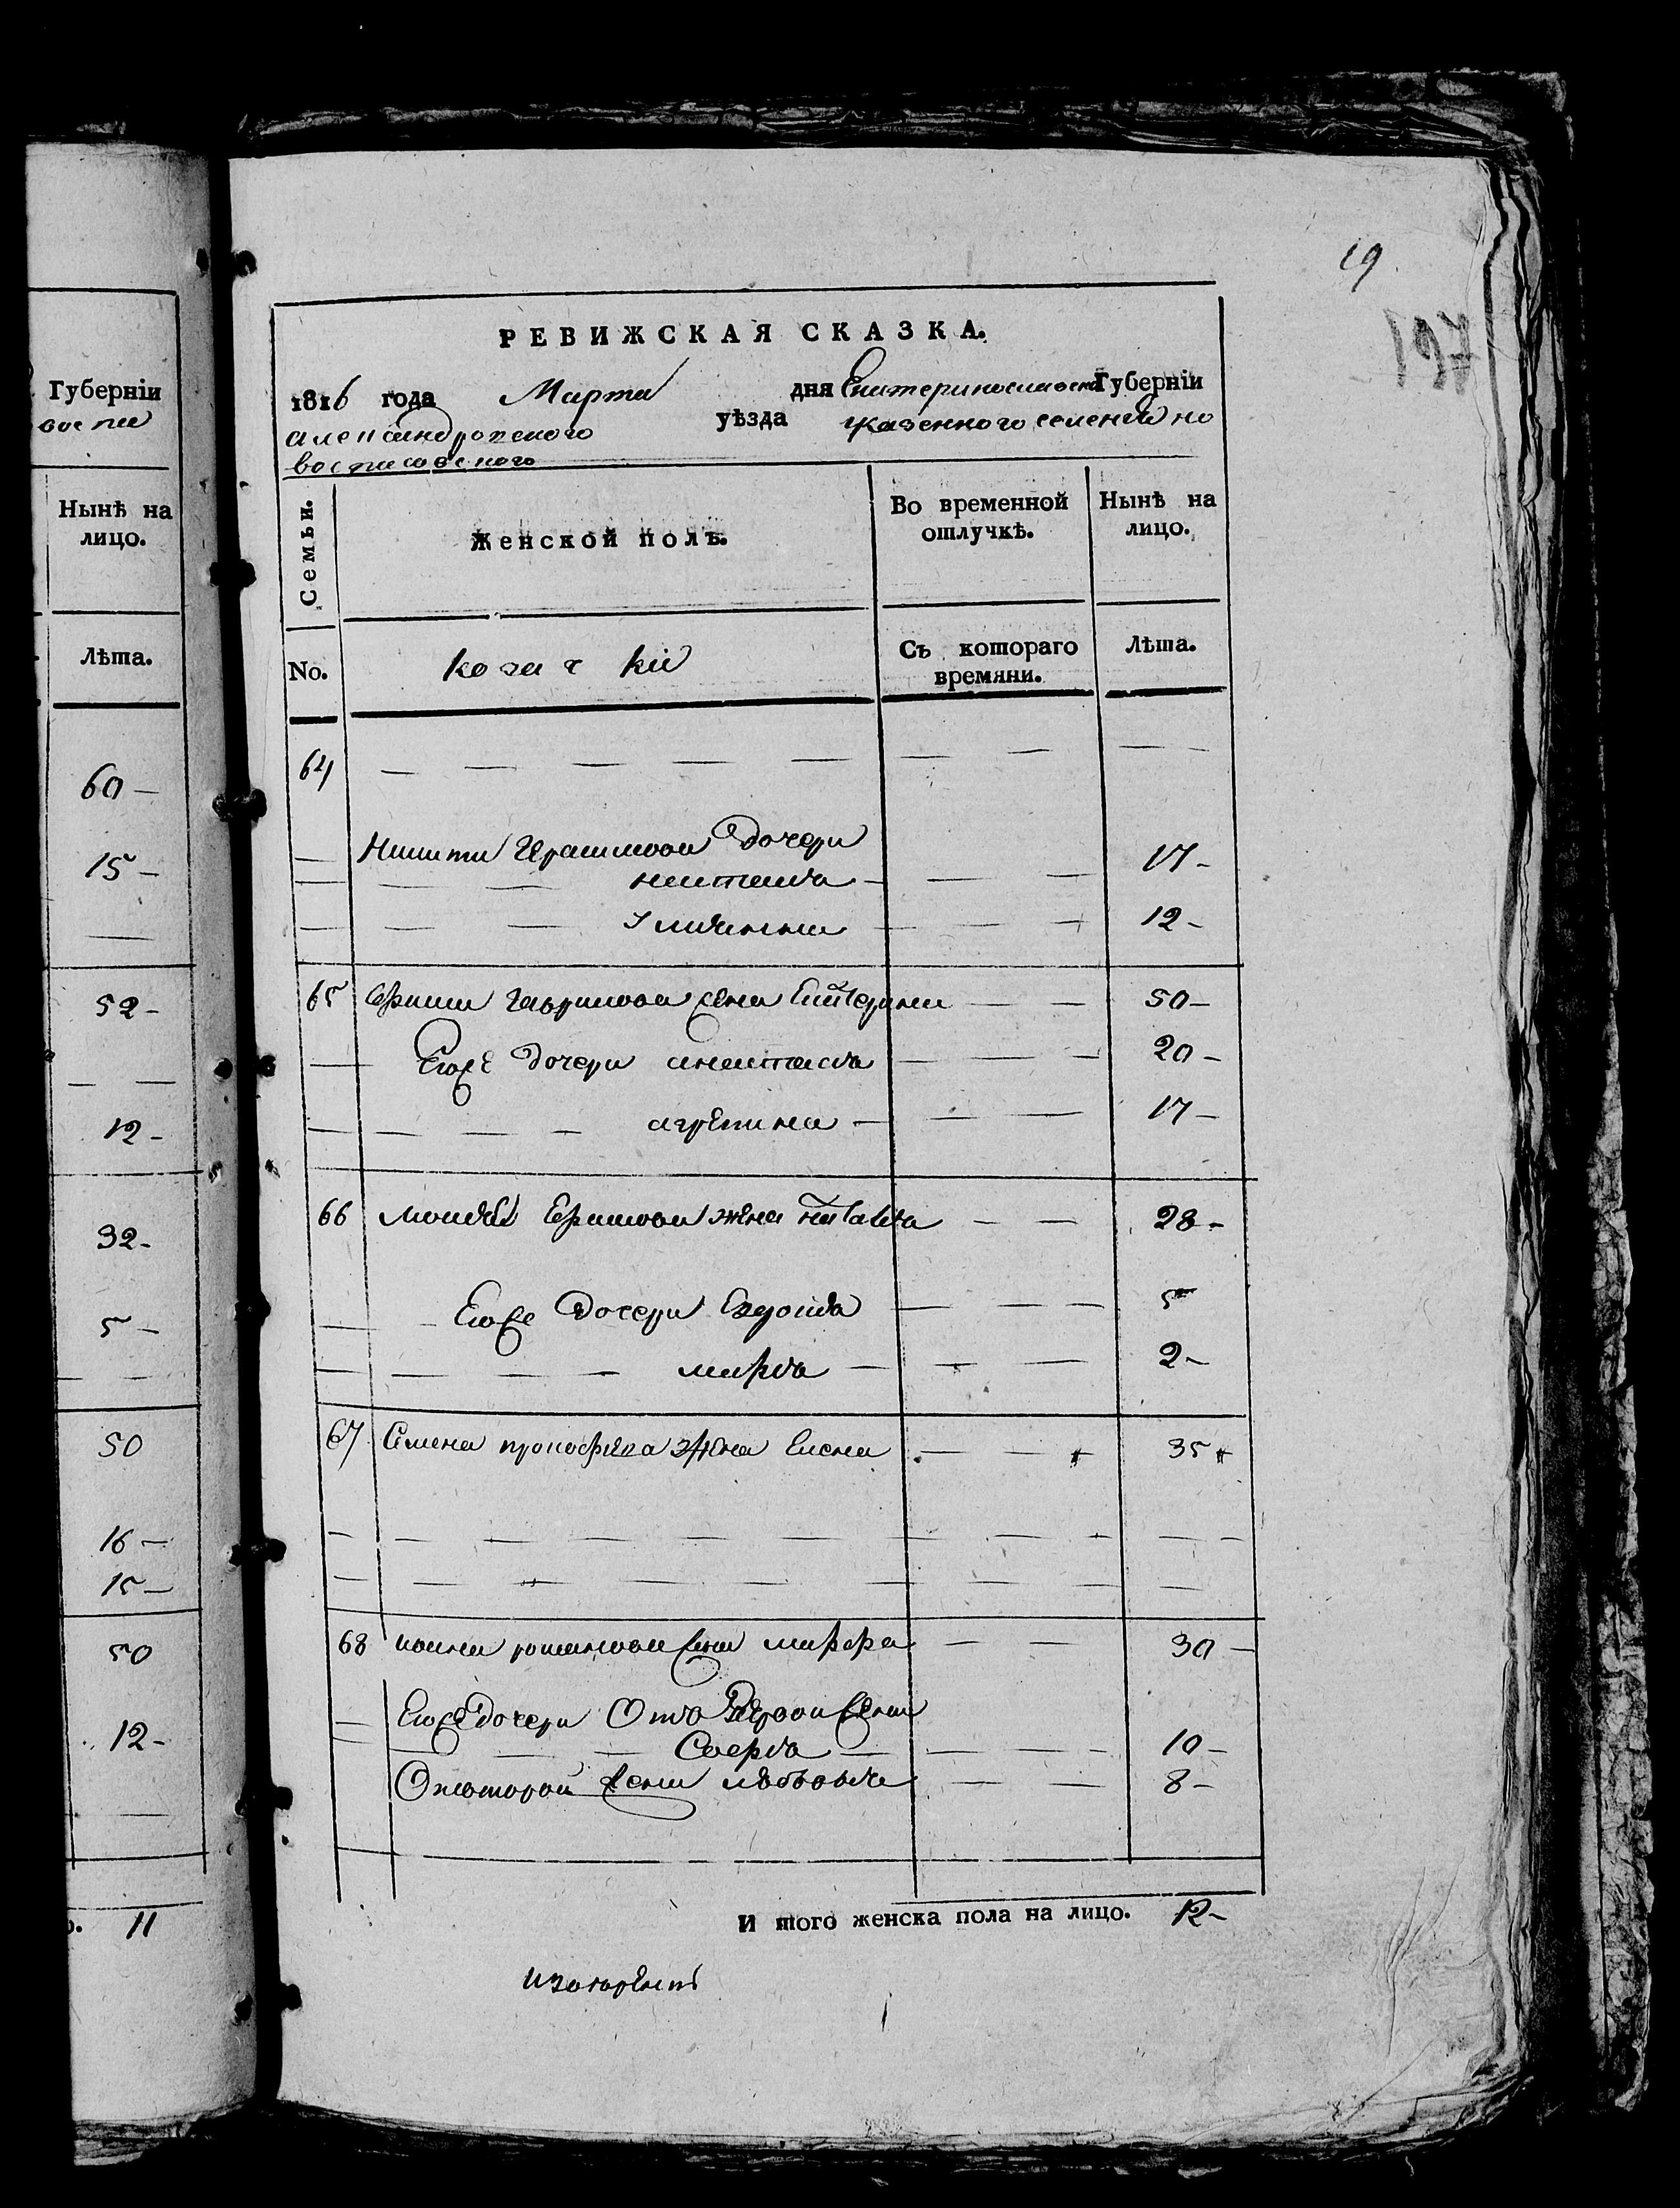 Губерніи
Нынѣ на
лицо.
Лѣта.
60 —
15 —
52 -
12 -
32 -
5 —
50
16 —
15 —
50
12 -
11
19
197
РЕВИЖСКАЯ СКАЗКА.
1816 года Марта дня Екатеринославской Губерніи
александровского уѣзда казенного селения но
Семьи.
Женской полъ.
Во временной
отлучкѣ.
Нынѣ на
лицо.
No.
Съ котораго
времяни.
Лѣта.
64
Никиты Герасимова дочери
наталя 17 -
Улияна 12 -
65 Ефима Гаврилова жена Екатерина 50 -
Егоже дочери анастасия 20 -
агрепина 17 -
66 Ефимова жена наталя 28 -
Егоже дочери Евдокия 5
марфа 2 -
67 Семена прокофева жена Елена 35
68 ивана романова жена марфа 30 —
Егоже дочери От первой жены
10 -
От второй жены любовь 8 -
И того женска пола на лицо. 12 -